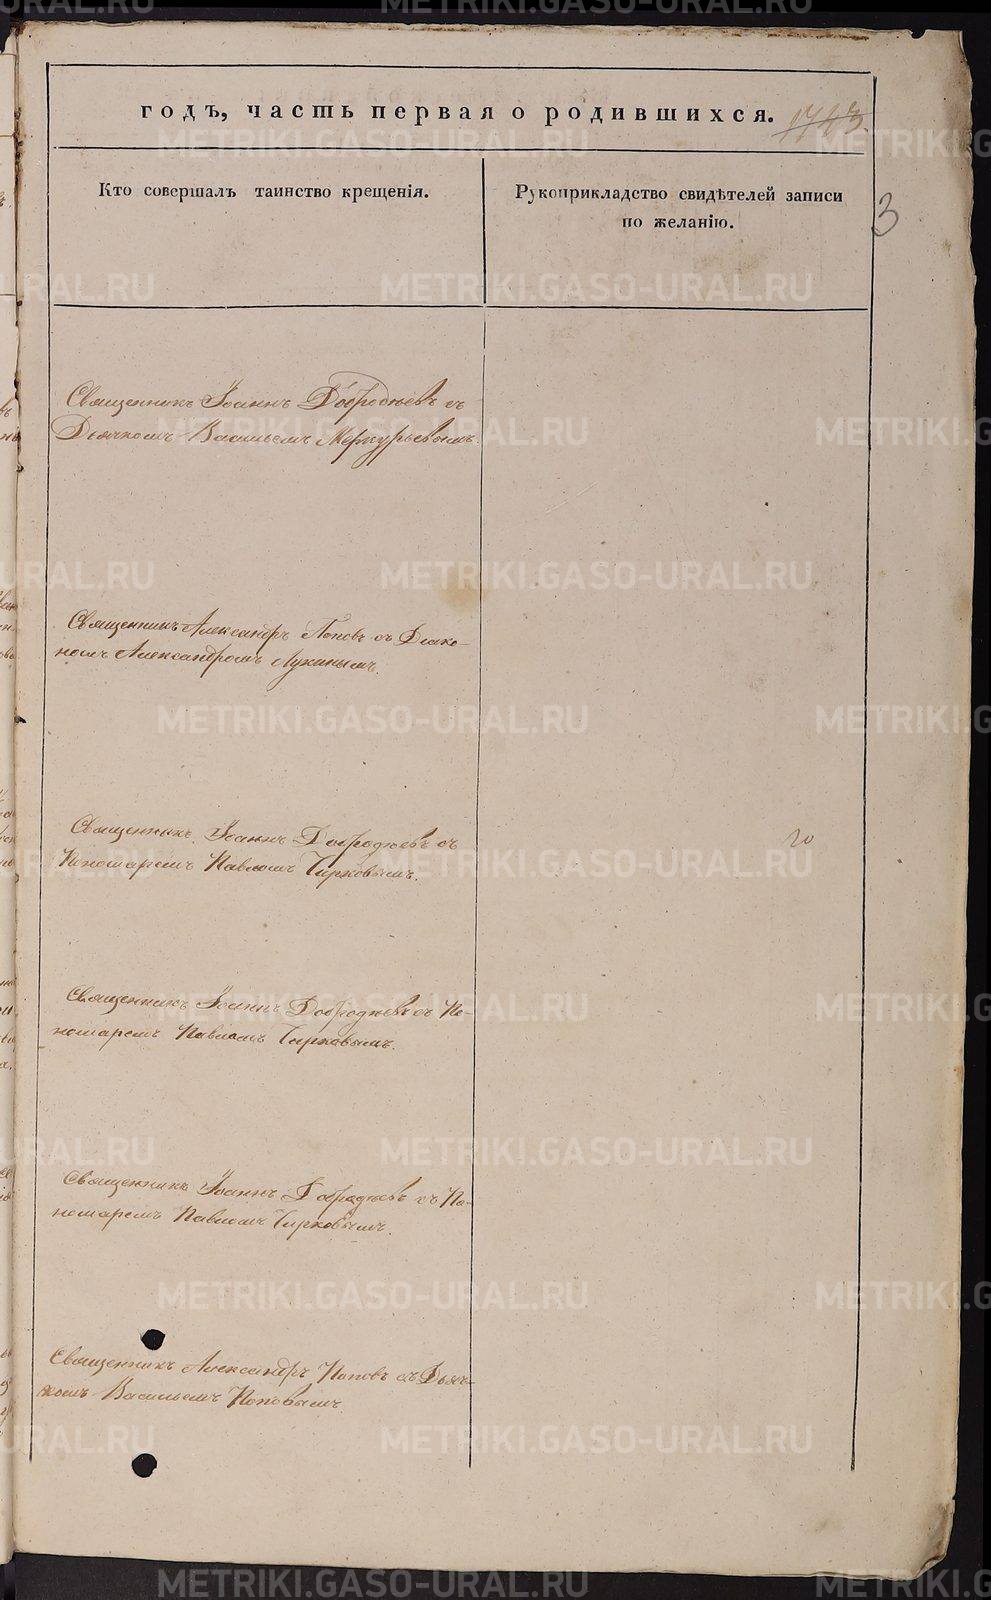 годъ, часть первая о родившихся.
3
Кто совершалъ таинство крещенія.
Рукоприкладство свидѣтелей записи
по желанію.
Священникъ Іоаннъ Добродѣевъ съ
Дьячкомъ Васильемъ Меркурьевымъ.
Священникъ Александръ Поповъ съ Діако-
номъ Александромъ Лукинымъ.
Священникъ Іоаннъ Добродѣевъ съ
Пономаремъ Павломъ Чирковымъ.
Священникъ Іоаннъ Добродѣевъ съ По-
номаремъ Павломъ Чирковымъ.
Священникъ Іоаннъ Добродѣевъ съ По-
номаремъ Павломъ Чирковымъ.
Священникъ Александръ Поповъ съ Дьяч-
комъ Васильемъ Поповымъ.
METRIKI.GASO-URAL.RU